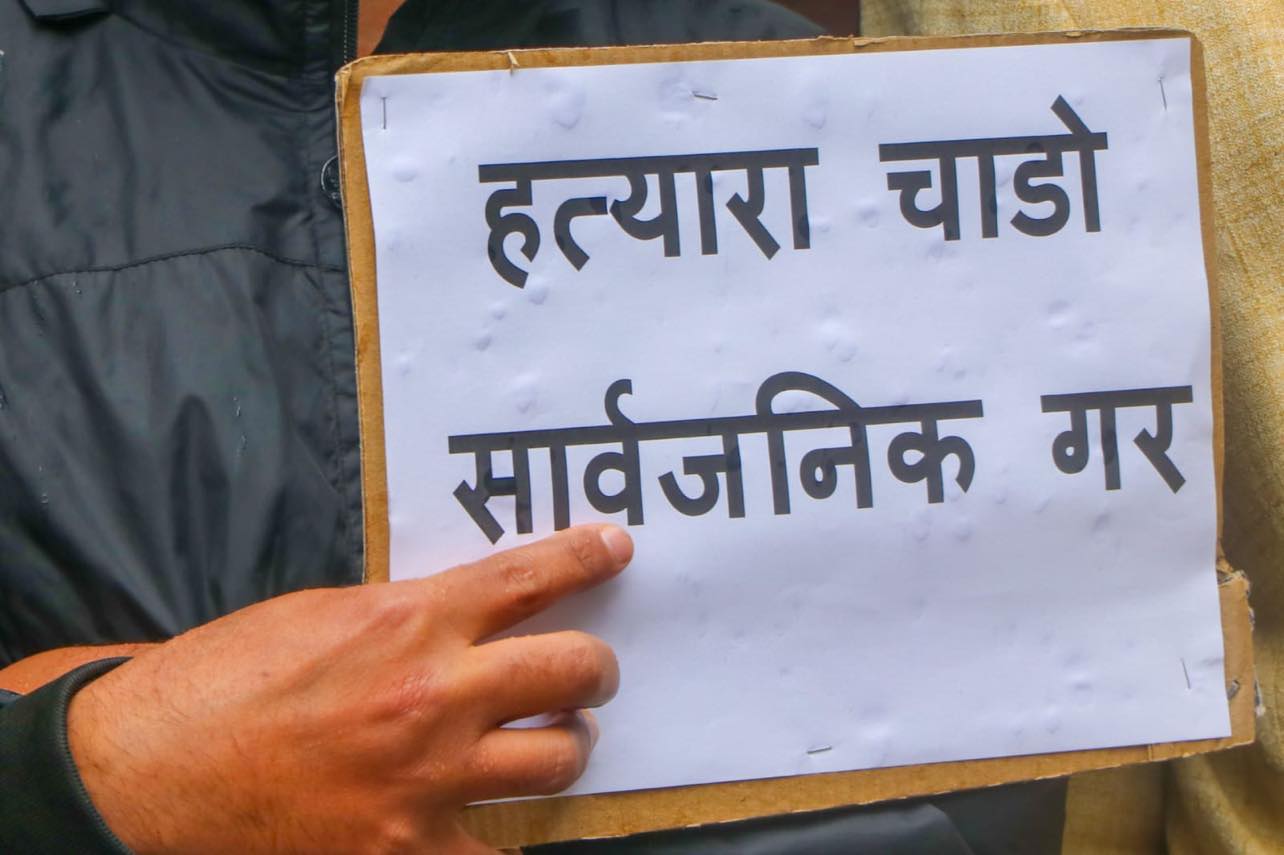 हत्यारा चाडो
सार्वजनिक गर